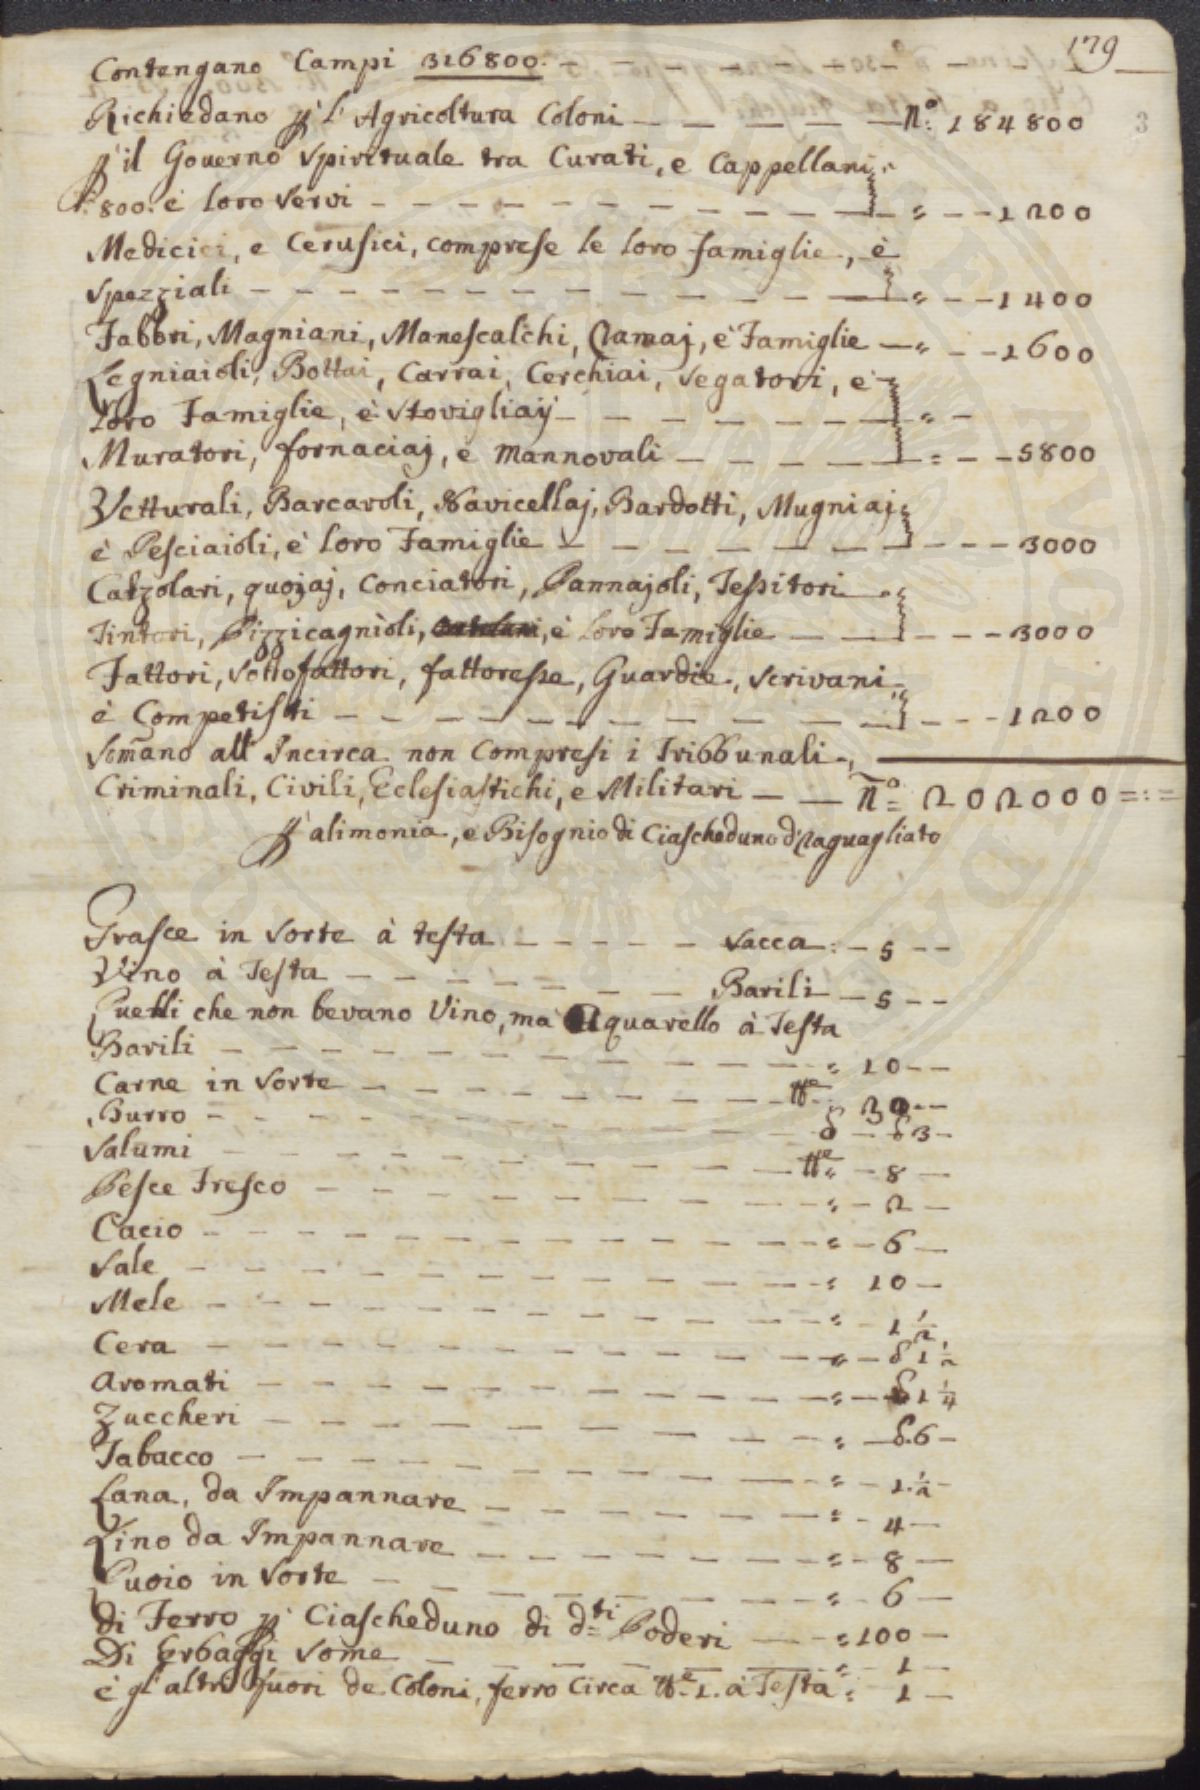 179
Contengano Campi 316800.
Richiedano p. l'Agricoltura Coloni n.° 184800
3
p. il Governo Spirituale tra Curati, e Cappellani
P. 800. è loro Servi 1200
Medicici, e Cerusici, comprese le loro famiglie, è
Spezziali 1400
Fabbri, Magniani, Manescalchi, Ramaj, è Famiglie 1600
Legniaioli, Bottai, Carrai, Cerchiai, Segatori, e
loro Famiglie, è Stovigliaij
Muratori, fornaciaj, e Mannovali 5800
Vetturali, Barcaroli, Navicellaj, Bardotti, Mugniaj
è Pesciaioli, è loro Famiglie 3000
Calzolari, quojaj, Conciatori, Pannajoli, Tessitori
Tintori, Pizzicagnioli, è loro Famiglie 3000
Fattori, Sottofattori, fattoresse, Guardie, Scrivani
è Competisti 1200
Somano all Incirca non compresi i Tribbunali
Criminali, Civili, Eclesiastichi, e Militari n.° 202000
p. alimonia, e Bisognio di Ciascheduno d'Raguagliato
Grasce in Sorte à testa Sacca 5
Vino à Testa Barili 5
Quelli che non bevano Vino, ma Aquarello à Testa
Barili 10
Carne in Sorte tt.e 30
Burro δ δ 3
Salumi tt.e 8
Pesce Fresco 2
Cacio 6
Sale 10
Mele 1 1/2
Cera δ 1 1/2
Aromati δ 1 1/4
Zuccheri δ. 6
Tabacco 1. 1/2
Lana, da Impannare 4
Lino da Impannare 8
Quoio in Sorte 6
Di Ferro p. Ciascheduno di d.ti Poderi 100
Di Erbaggi Some 1
è gl'altri fuori de Coloni, ferro Circa tt.e 1. à Testa 1